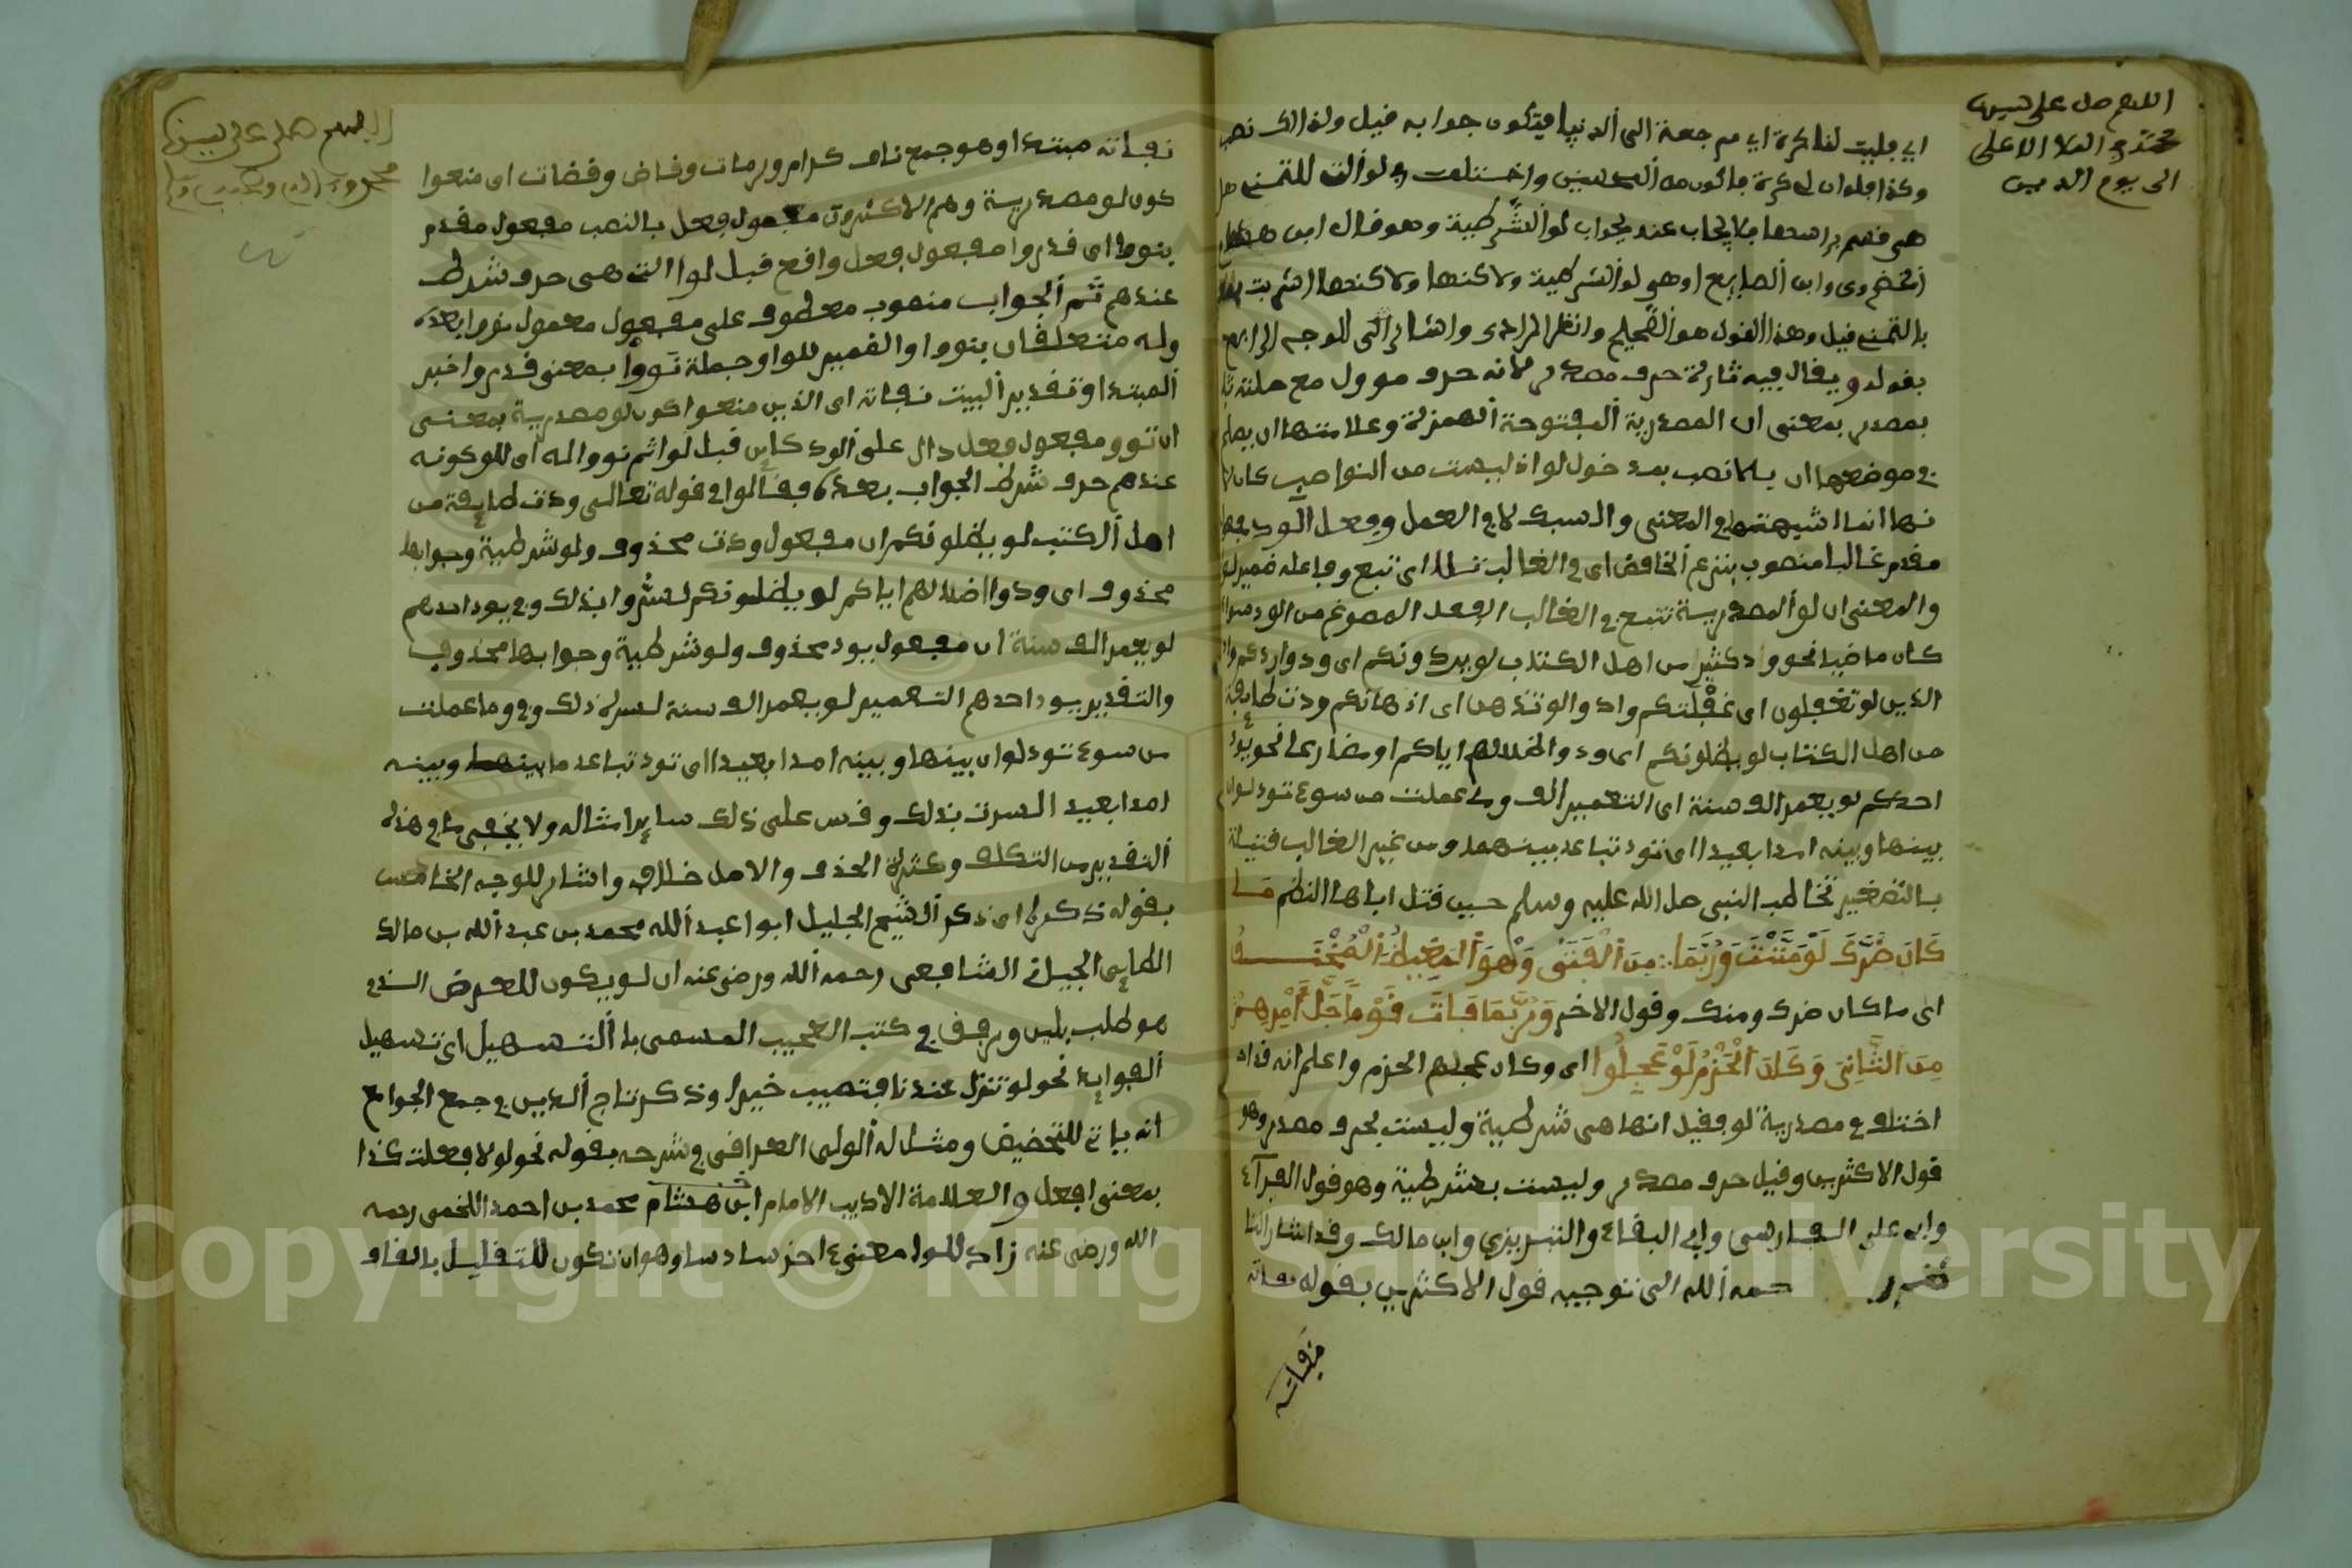 اللهم صل على سيدنا
محمد في الملا الاعلى
الى يوم الدين
اي فليت لنا كرة اي مرجعة الى الدنيا فيكون جوابه قيل ولذالك نصب
وكذا فلو ان لي كرة فاكون من المحسنين واختلف في لو التي للتمني هل
هي قسم براسها فلا يجاب عند بجواب لو الشرطية وهو قال ابن هشام
الخضراوي وابن الصايع او هي لو الشرطية ولاكنها اشربت معنى
بالتمني قيل وهذا القول هو الصحيح وانظر المرادي واشار الى الوجه الرابع
بقوله ويقال فيه تارة حرف مصدر لانه حرف موول مع صلته
بمصدر بمعنى ان المصدرية المفتوحة الهمزة وعلامتها ان يصلح
في موضعها ان بلا نصب بعد خول لو اذ ليست من النواصب
نها انما اشبهتها في المعنى والسبك لا في العمل وفعل الود
مقدم غالبا منصوب بنزع الخافض اي في الغالب تلا اي تبع وفاعله ضمير
والمعنى ان لو المصدرية تتبع في الغالب الفعل المصوغ من الود
كان ماضيا نحو ود كثير من اهل الكتاب لو يردونكم اي ودوا ردكم
الذين لو تغفلون اي غفلتكم وادوا لو تذهن اي اذهانكم ودت طايفة
من اهل الكتاب لو يظلونكم اي ودوا اظلالهم اياكم او مضارعا نحو يود
احدكم لو يعمر الف سنة اي التعمير الف وما عملت من سوء تود لو ان
بينها وبينه امدا بعيدا اي تود تباعد بينهما ومن غير الغالب قتيلة
بالتصغير تخاطب النبي صلى الله عليه وسلم حين قتل اباها النظم مـا
كَانَ ضَرَّكَ لَوْ مَنَنْتَ وَرُبَّمَا ∴ مِنَ الْفَتَى وَهْوَ الْمَغِيظُ الْمُحْنَـــقُ
اي ما كان ضرك ومنك وقول الاخر وَرُبَّمَا فَاتَ قَوْماً جَلَّ أَمْرِهِمْ
مِنَ التَّأَنِّي وَكَانَ الْحَزْمُ لَوْ عَجِلُوا اي وكان عجلهم الحزم واعلم انه قد
اختلف في مصدرية لو فقيل انها هي شرطية وليست بحرف مصدر وهو
قول الاكثرين وقيل حرف مصدر وليست بشرطية وهو قول الفراء
وابي علي الفارسي وابي البقاء والتبريزي وابن مالك وقد اشار
حمه الله الى توجيه قول الاكثرين بقوله نفاته
نفاته
اللهم صلى على سيدنا
نفاته مبتدا وهو جمع ناف كرام ورمات وقاض وقضات اي منعوا
كون لو مصدرية وهم الاكثرون مفعول فعل بالنصب مفعول مقدم
بنووا اي قدروا مفعول فعل واقع قبل لوا التي هي حرف شرط
عندهم ثم الجواب منصوب معطوف على مفعول معمول نووا بعده
وله متعلقان بنووا والضمير للو وجملة نووا بمعنى قدروا خبر
المبتدا وتقدير البيت نفاته اي الذين منعوا كون لو مصدرية بمعنى
ان نووا مفعول فعل دال على الود كاين قبل لو اثم نووا له اي للو كونه
عندهم حرف شرط الجواب بعده فقالوا في قوله تعالى ودت طايفة من
اهل الكتب لو يظلونكم ان مفعول ودت محذوف ولو شرطية وجوابها
محذوف اي ودوا اضلالهم اياكم لو يظلونكم لسروا بذلك وفي يود احدهم
لو يعمر الف سنة ان مفعول يود محذوف ولو شرطية وجوابها محذوف
والتقدير يود احدهم التعمير لو يعمر الف سنة لسره ذلك وفي وما عملت
من سوء تود لو ان بينها وبينه امدا بعيدا اي تود تباعد ما بينها وبينه
امدا بعيد السرت بذلك وقس على ذلك ساير امثاله ولا يخفى ما في هذه
التقدير من التكلف وكثرة الحذف والاصل خلافه واشار للوجه الخامس
بقوله ذكرا اي ذكر الشيخ الجليل ابوا عبد الله محمد بن عبد الله بن مالك
الطايي الجياني الشافعي رحمه الله ورضي عنه ان لو يكون للعرض الذي
هو طلب بلين ورفق في كتب العجيب المسمى با التسهيل اي تسهيل
الفوايد نحو لو تنزل عندنا فتصيب خيرا وذكر تاج الدين في جمع الجوامع
انه ياتي للتحضيض ومثل له الولي العراقي في شرحه بقوله نحو لو لا فعلت كذا
بمعنى افعل والعلامة الاديب الامام ابن هشام محمد بن احمد اللخمي رحمه
الله ورضي عنه زاد للوا معنىء اخز سادسا وهو ان تكون للتقليل بالقاف
Copyright © King Saud University